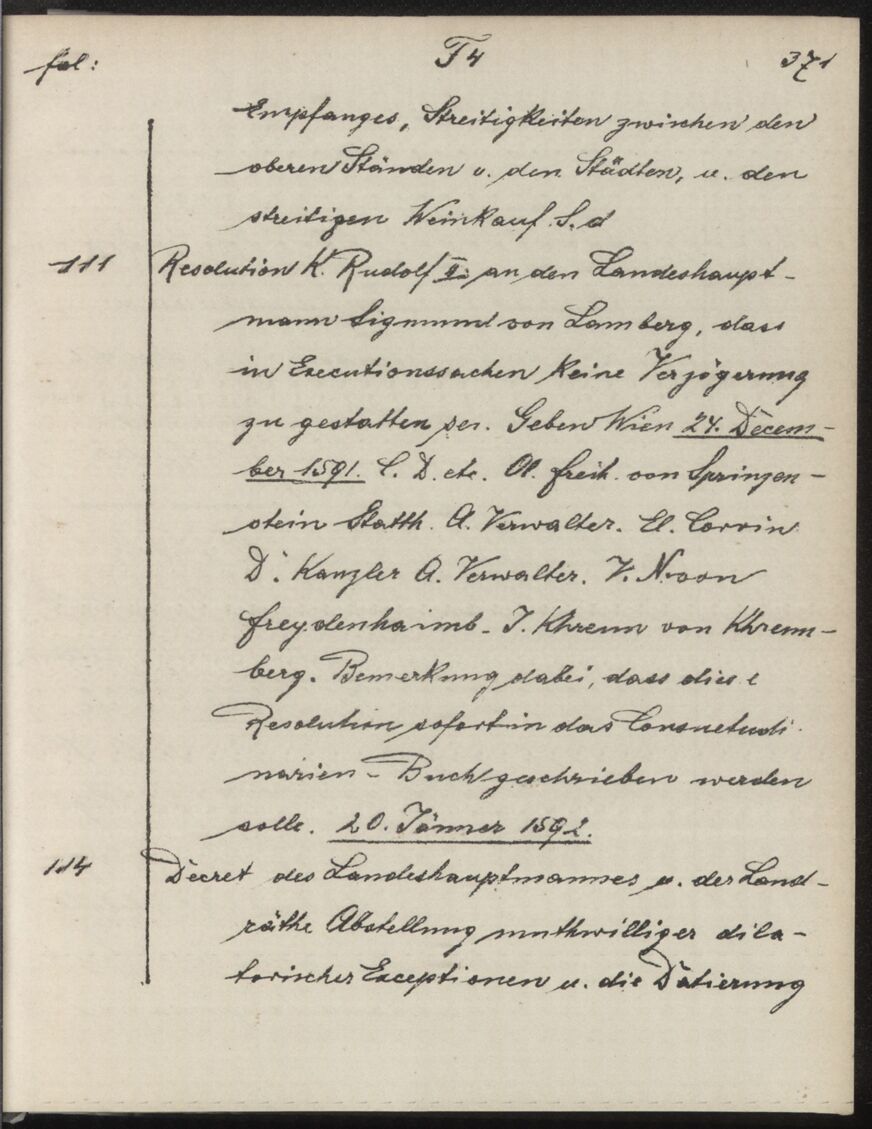 fol: F4 371
Empfanges, Streitigkeiten zwischen den
oberen Ständen u. den Städten, u. den
streitigen Weinkauf. S. d
111 Resolution K. Rudolf II. an den Landeshaupt-
mann Sigmund von Lamberg, dass
in Executionssachen keine Verzögerung
zu gestatten sei. Geben Wien 24. Decem-
ber 1591. C. D. etc. Al. freih. von Sprinzen-
stein Statth. A. Verwalter. El. Corvin
D. Kanzler A. Verwalter. V. N. von
freydenhaimb - J. Khrenn von Khrenn-
berg. Bemerkung dabei, dass diese
Resolution sofort in das Consuetudi
narien-Buch geschrieben werden
solle. 20. Jänner 1592.
114 Decret des Landeshauptmannes u. der Land-
räthe Abstellung muthwilliger dila-
torischer Exceptionen u. die Datierung